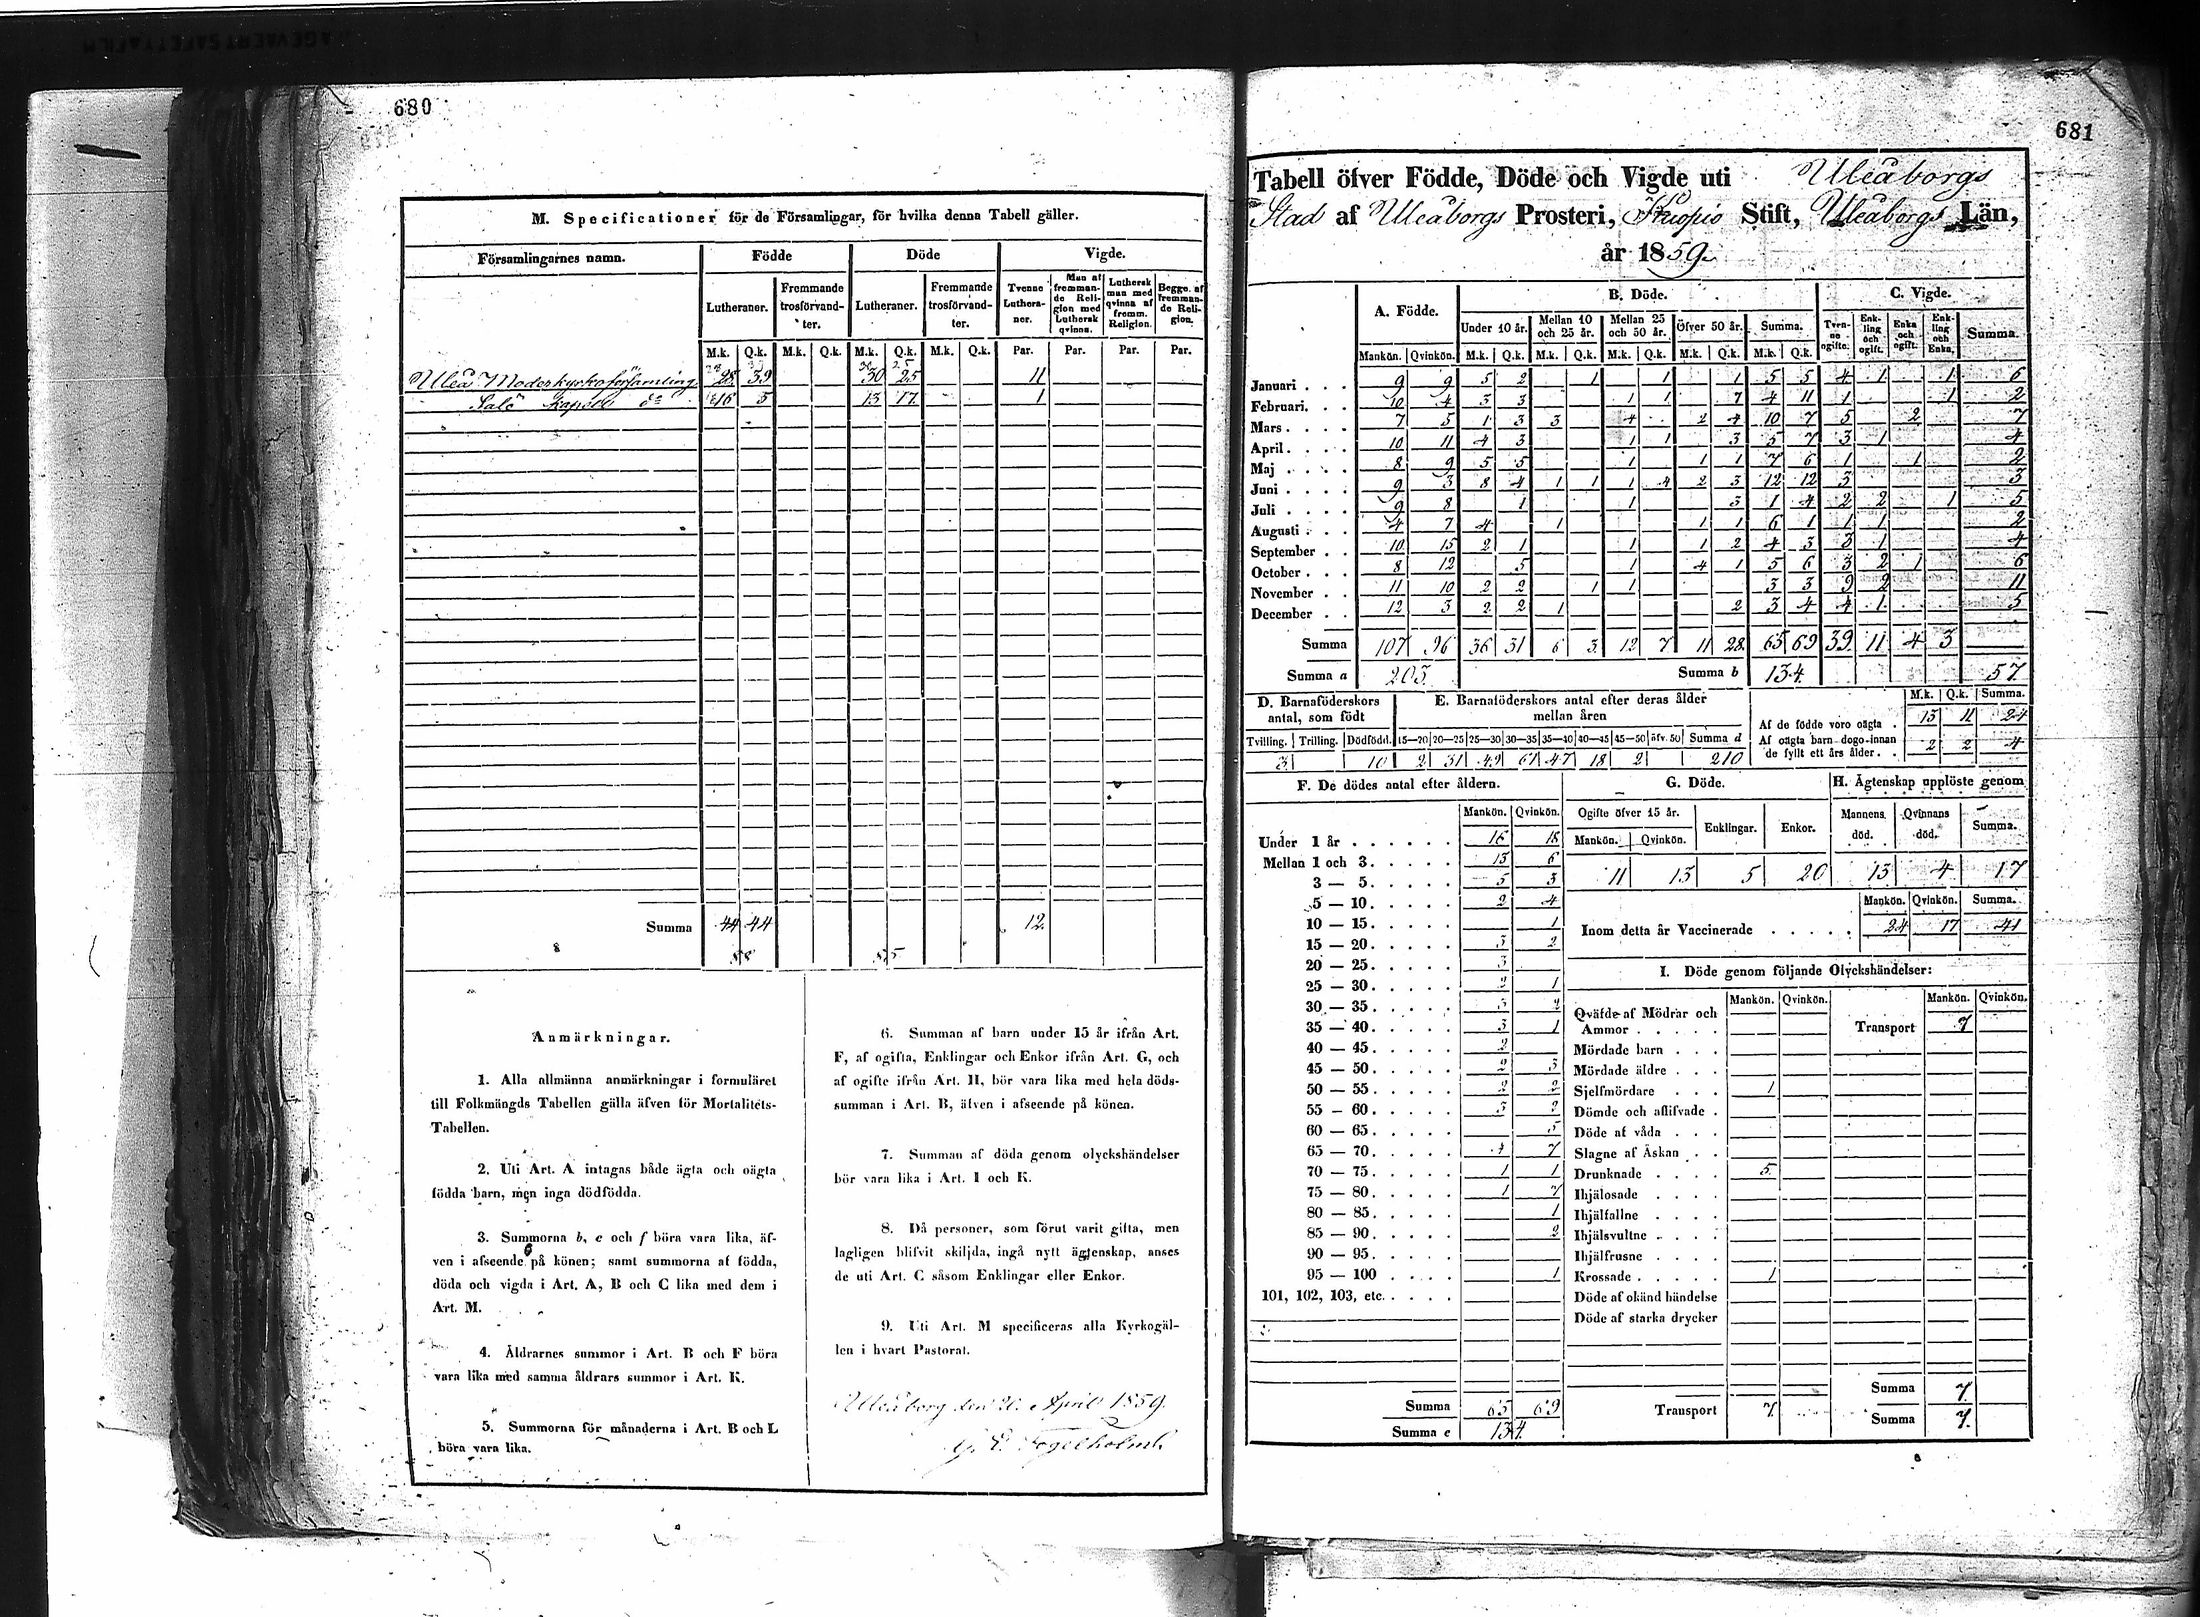 680
M. Specificationer för de Församlingar, för hvilka denna Tabell gäller.
Församlingarnes namn. Födde Döde Vigde.
Lutheraner. Fremmande trosförvandter. Lutheraner. Fremmande trosförvandter. Tvenne Lutheraner. Man af fremmande Religion med Luthersk qvinna. Luthersk man med qvinna af fremm. Religion. Begge af fremmande Religion.
M.k. Q.k. M.k. Q.k. M.k. Q.k. M.k. Q.k. Par. Par. Par. Par.
Uleå Moderkyrkoförsamling 28 39 30 25 11
Salo kapell do 16 5 13 17 1
Summa 44 44 12.
88 85
Anmärkningar.
1. Alla allmänna anmärkningar i formuläret
till Folkmängds Tabellen gälla äfven för Mortalitets-
Tabellen.
2. Uti Art. A intagas både ägta och oägta
födda barn, men inga dödfödda.
3. Summorna b, e och f böra vara lika, äf-
ven i afseende på könen; samt summorna af födda,
döda och vigda i Art. A, B och C lika med dem i
Art. M.
4. Åldrarnes summor i Art. B och F böra
vara lika med samma åldrars summor i Art. K.
5. Summorna för månaderna i Art. B och L
böra vara lika.
6. Summan af barn under 15 år ifrån Art.
F, af ogifta, Enklingar och Enkor ifrån Art. G, och
af ogifte ifrån Art. H, bör vara lika med hela döds-
summan i Art. B, äfven i afseende på könen.
7. Summan af döda genom olyckshändelser
bör vara lika i Art. I och K.
8. Då personer, som förut varit gifta, men
lagligen blifvit skiljda, ingå nytt ägtenskap, anses
de uti Art. C såsom Enklingar eller Enkor.
9. Uti Art. M specificeras alla Kyrkogäl-
len i hvart Pastorat.
Uleåborg den April 1859.
Fogelholm
681
Tabell öfver Födde, Döde och Vigde uti Uleåborgs
Stad af Uleåborgs Prosteri, Kuopio Stift, Uleåborgs Län,
år 1859.
A. Födde. B. Döde. C. Vigde.
Under 10 år. Mellan 10 och 25 år. Mellan 25 och 50 år. Öfver 50 år. Summa. Tvenne ogifte. Enkling och ogift. Enka och ogift. Enkling och Enka. Summa.
Mankön. Qvinkön. M.k. Q.k. M.k. Q.k. M.k. Q.k. M.k. Q.k. M.k. Q.k.
Januari . . . 9 9 5 2 1 1 1 5 5 4 1 1 6
Februari. . . 10 4 3 3 1 1 7 4 11 1 1 2
Mars . . . . 7 5 1 3 3 4 2 4 10 7 5 2 7
April. . . . 10 11 4 3 1 1 3 5 7 3 1 4
Maj . . . . 8 9 5 5 1 1 1 7 6 1 1 2
Juni . . . . 9 3 8 4 1 1 1 4 2 3 12 12 3 3
Juli . . . . 9 8 1 1 3 1 4 2 2 1 5
Augusti . . . 4 7 4 1 1 1 6 1 1 1 2
September . . 10 15 2 1 1 1 2 4 3 3 1 4
October . . . 8 12 5 1 4 1 5 6 3 2 1 6
November . . 11 10 2 2 1 1 3 3 9 2 11
December . . 12 3 2 2 1 2 3 4 4 1 5
Summa 107 96 36 31 6 3 12 7 11 28 65 69 39 11 4 3
Summa a 203 Summa b 134 57
D. Barnaföderskors antal, som födt
E. Barnaföderskors antal efter deras ålder mellan åren
M.k. Q.k. Summa.
Af de födde voro oägta . 13 11 24
Af oägta barn dogo innan de fyllt ett års ålder. . 2 2 4
Tvilling. Trilling. Dödfödd. 15—20 20—25 25—30 30—35 35—40 40—45 45—50 öfv. 50 Summa d
3 10 2 31 49 61 47 18 2 210
F. De dödes antal efter åldern.
Mankön. Qvinkön.
Under 1 år . . . . . . 16 18
Mellan 1 och 3. . . . . 13 6
3 — 5. . . . . 5 3
5 — 10. . . . . 2 4
10 — 15. . . . . 1
15 — 20. . . . . 3 2
20 — 25. . . . . 3
25 — 30. . . . . 2 1
30 — 35. . . . . 3 2
35 — 40. . . . . 3 1
40 — 45. . . . . 2
45 — 50. . . . . 2 3
50 — 55. . . . . 2 2
55 — 60. . . . . 3 2
60 — 65. . . . . 5
65 — 70. . . . . 4 7
70 — 75. . . . . 1 1
75 — 80. . . . . 1 7
80 — 85. . . . . 1
85 — 90. . . . . 2
90 — 95. . . . .
95 — 100 . . . . 1
101, 102, 103, etc. . . . .
Summa 65 69
Summa e 134
G. Döde.
Ogifte öfver 15 år. Enklingar. Enkor.
Mankön. Qvinkön.
11 13 5 20
H. Ägtenskap upplöste genom
Mannens död. Qvinnans död. Summa.
13 4 17
Mankön. Qvinkön. Summa.
Inom detta år Vaccinerade . . . . . 24 17 41
I. Döde genom följande Olyckshändelser:
Mankön. Qvinkön. Mankön. Qvinkön.
Qväfde af Mödrar och Ammor . . . . . Transport 7
Mördade barn . . .
Mördade äldre . . .
Sjelfmördare . . . 1
Dömde och aflifvade .
Döde af våda . . .
Slagne af Åskan . .
Drunknade . . . . 5
Ihjälosade . . . .
Ihjälfallne . . . .
Ihjälsvultne . . . .
Ihjälfrusne . . . .
Krossade . . . . . 1
Döde af okänd händelse
Döde af starka drycker
Summa 7.
Transport 7. Summa 7.